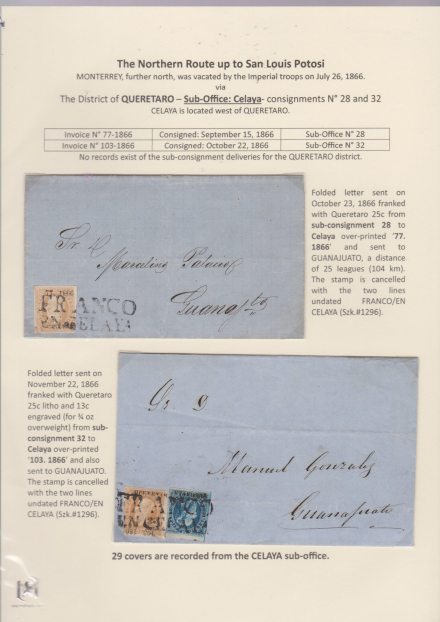 The Northern Route up to San Louis Potosi
MONTERREY, further north, was vacated by the Imperial troops on July 26, 1866.
via
The District of QUERETARO – Sub-Office: Celaya- consignments N° 28 and 32
CELAYA is located west of QUERETARO.
Invoice N° 77-1866 Consigned: September 15, 1866 Sub-Office N° 28
Invoice N° 103-1866 Consigned: October 22, 1866 Sub-Office N° 32
No records exist of the sub-consignment deliveries for the QUERETARO district.
Folded letter sent on
October 23, 1866 franked
with Queretaro 25c from
sub-consignment 28 to
Celaya over-printed '77.
1866' and sent to
GUANAJUATO, a distance
of 25 leagues (104 km).
The stamp is cancelled
with the two lines
undated FRANCO/EN
CELAYA (Szk.#1296).
Sr. D
Guanajto
FRANCO
EN CELAYA
Folded letter sent on
November 22, 1866
franked with Queretaro
25c litho and 13c
engraved (for ¾ oz
overweight) from sub-
consignment 32 to
Celaya over-printed
'103. 1866' and also
sent to GUANAJUATO.
The stamp is cancelled
with the two lines
undated FRANCO/EN
CELAYA (Szk.#1296).
Sr D
Manuel Gonzalez
Guanajuato
FRANCO
EN CELAYA
29 covers are recorded from the CELAYA sub-office.